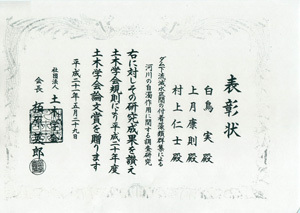 表彰状
白鳥 実 殿
上月 康則 殿
村上 仁士 殿
ダム下流減水区間の付着藻類群集による
河川の自濁作用に関する調査研究
右に対しその研究成果を讃え
土木学会規則により平成二十年度
土木学会論文賞を贈ります
平成二十一年五月二十九日
社団法人 土木学会
会長